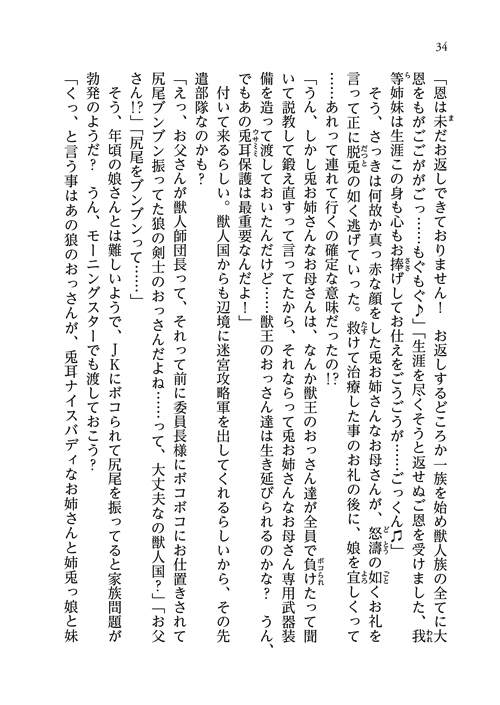 34
「恩は未だお返しできておりません！　お返しするどころか一族を始め獣人族の全てに大
恩をもがごごががごっ……もぐもぐ♪」「生涯を尽くそうと返せぬご恩を受けました、我
等姉妹は生涯この身も心もお捧げしてお仕えをごうごうが……ごっくん♫」
　そう、さっきは何故か真っ赤な顔をした兎お姉さんなお母さんが、怒濤の如くお礼を
言って正に脱兎の如く逃げていった。救けて治療した事のお礼の後に、娘を宜しくって
……あれって連れて行くの確定な意味だったの!?
「うん、しかし兎お姉さんなお母さんは、なんか獣王のおっさん達が全員で負けたって聞
いて説教して鍛え直すって言ってたから、それならって兎お姉さんなお母さん専用武器装
備を造って渡しておいたんだけど……獣王のおっさん達は生き延びられるのかな？　うん、
でもあの兎耳保護は最重要なんだよ！」
　付いて来るらしい。獣人国からも辺境に迷宮攻略軍を出してくれるらしいから、その先
遣部隊なのかも？
「えっ、お父さんが獣人師団長って、それって前に委員長様にボコボコにお仕置きされて
尻尾ブンブン振ってた狼の剣士のおっさんだよね……って、大丈夫なの獣人国？」「お父
さん!?」「尻尾をブンブンって……」
　そう、年頃の娘さんとは難しいようで、ＪＫにボコられて尻尾を振ってると家族問題が
勃発のようだ？　うん、モーニングスターでも渡しておこう？
「くっ、と言う事はあの狼のおっさんが、兎耳ナイスバディなお姉さんと姉兎っ娘と妹